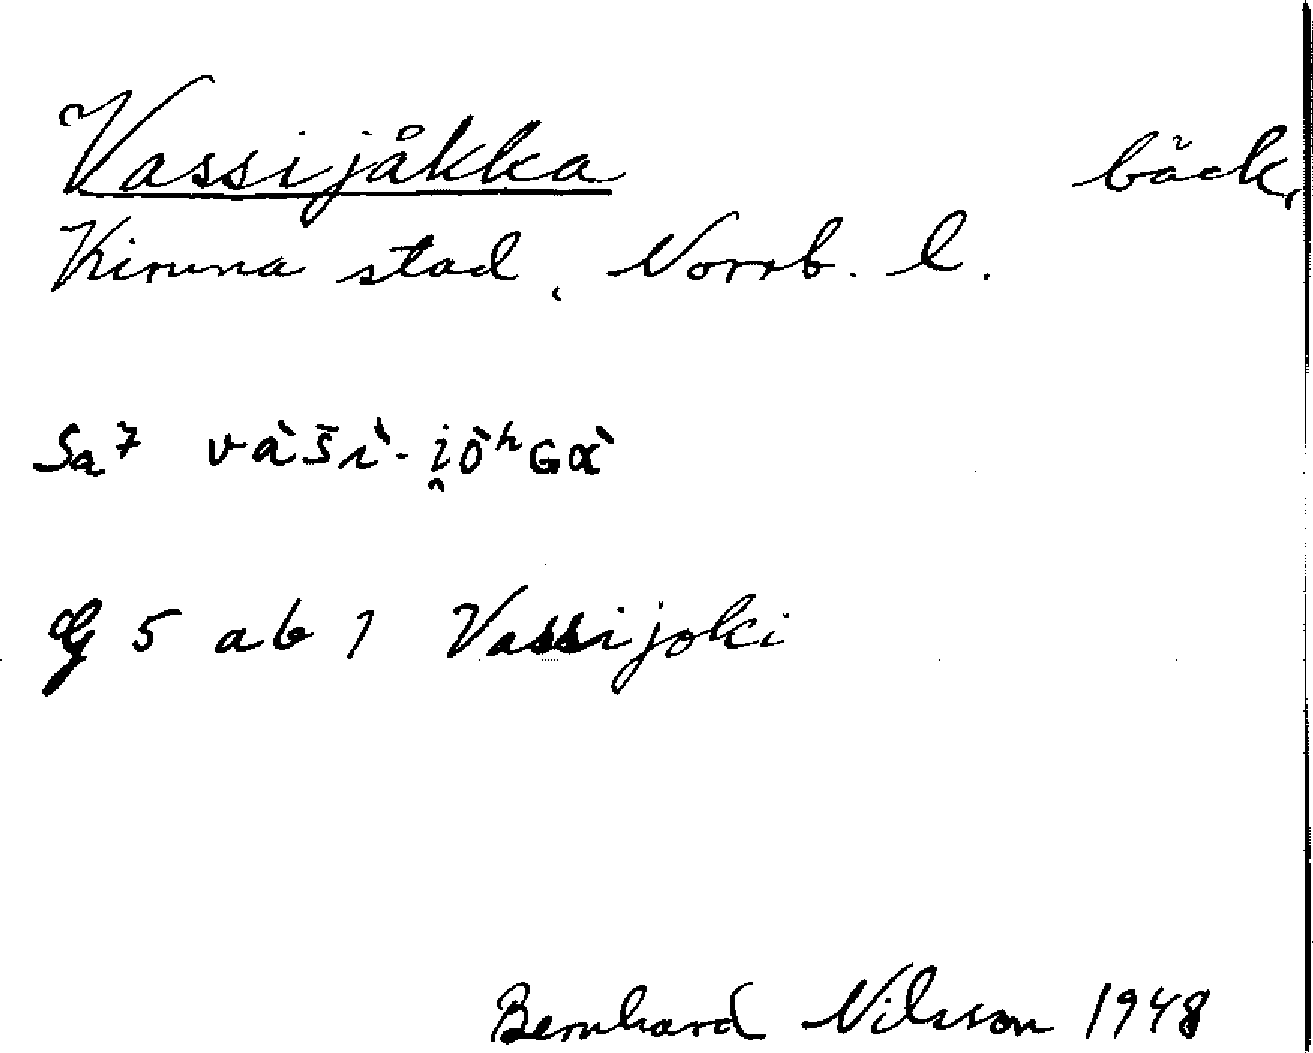 Vassijåkka bäck,
Kiruna stad, Norrb. l.
Sa 7 vàši̊̀-i̯òʰGɑ̀
G 5 ab 1 Vassijoki
Bernhard Nilsson 1948